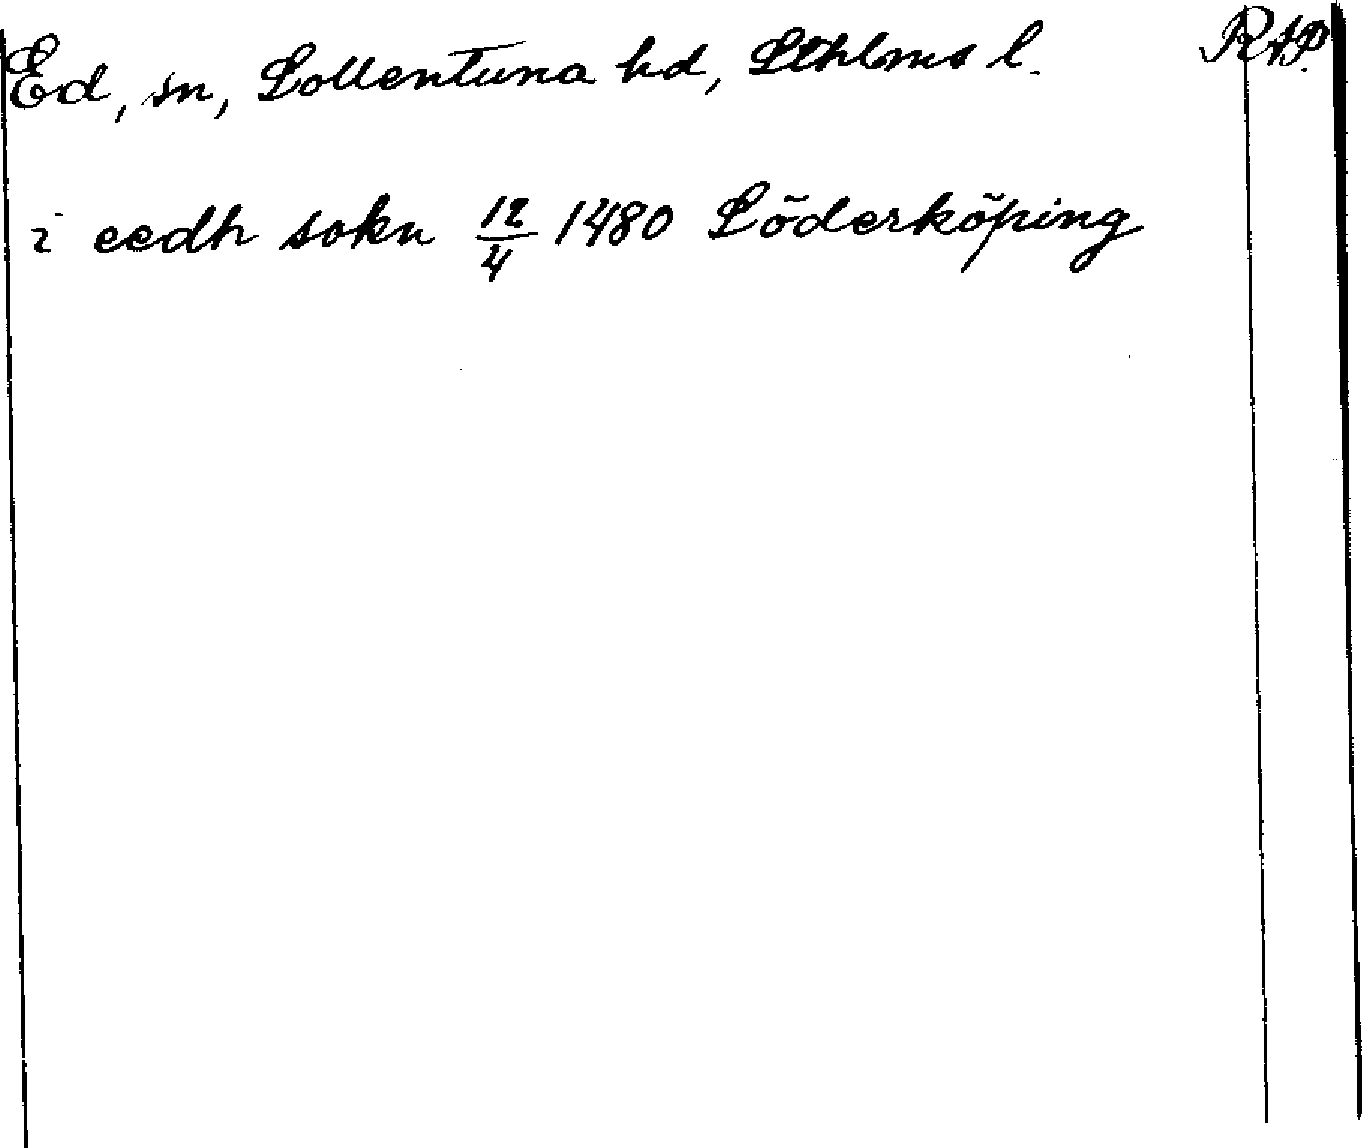 Ed, sn, Sollentuna hd, Sthlms l. RAP.
i eedh sokn 12/4 1480 Söderköping